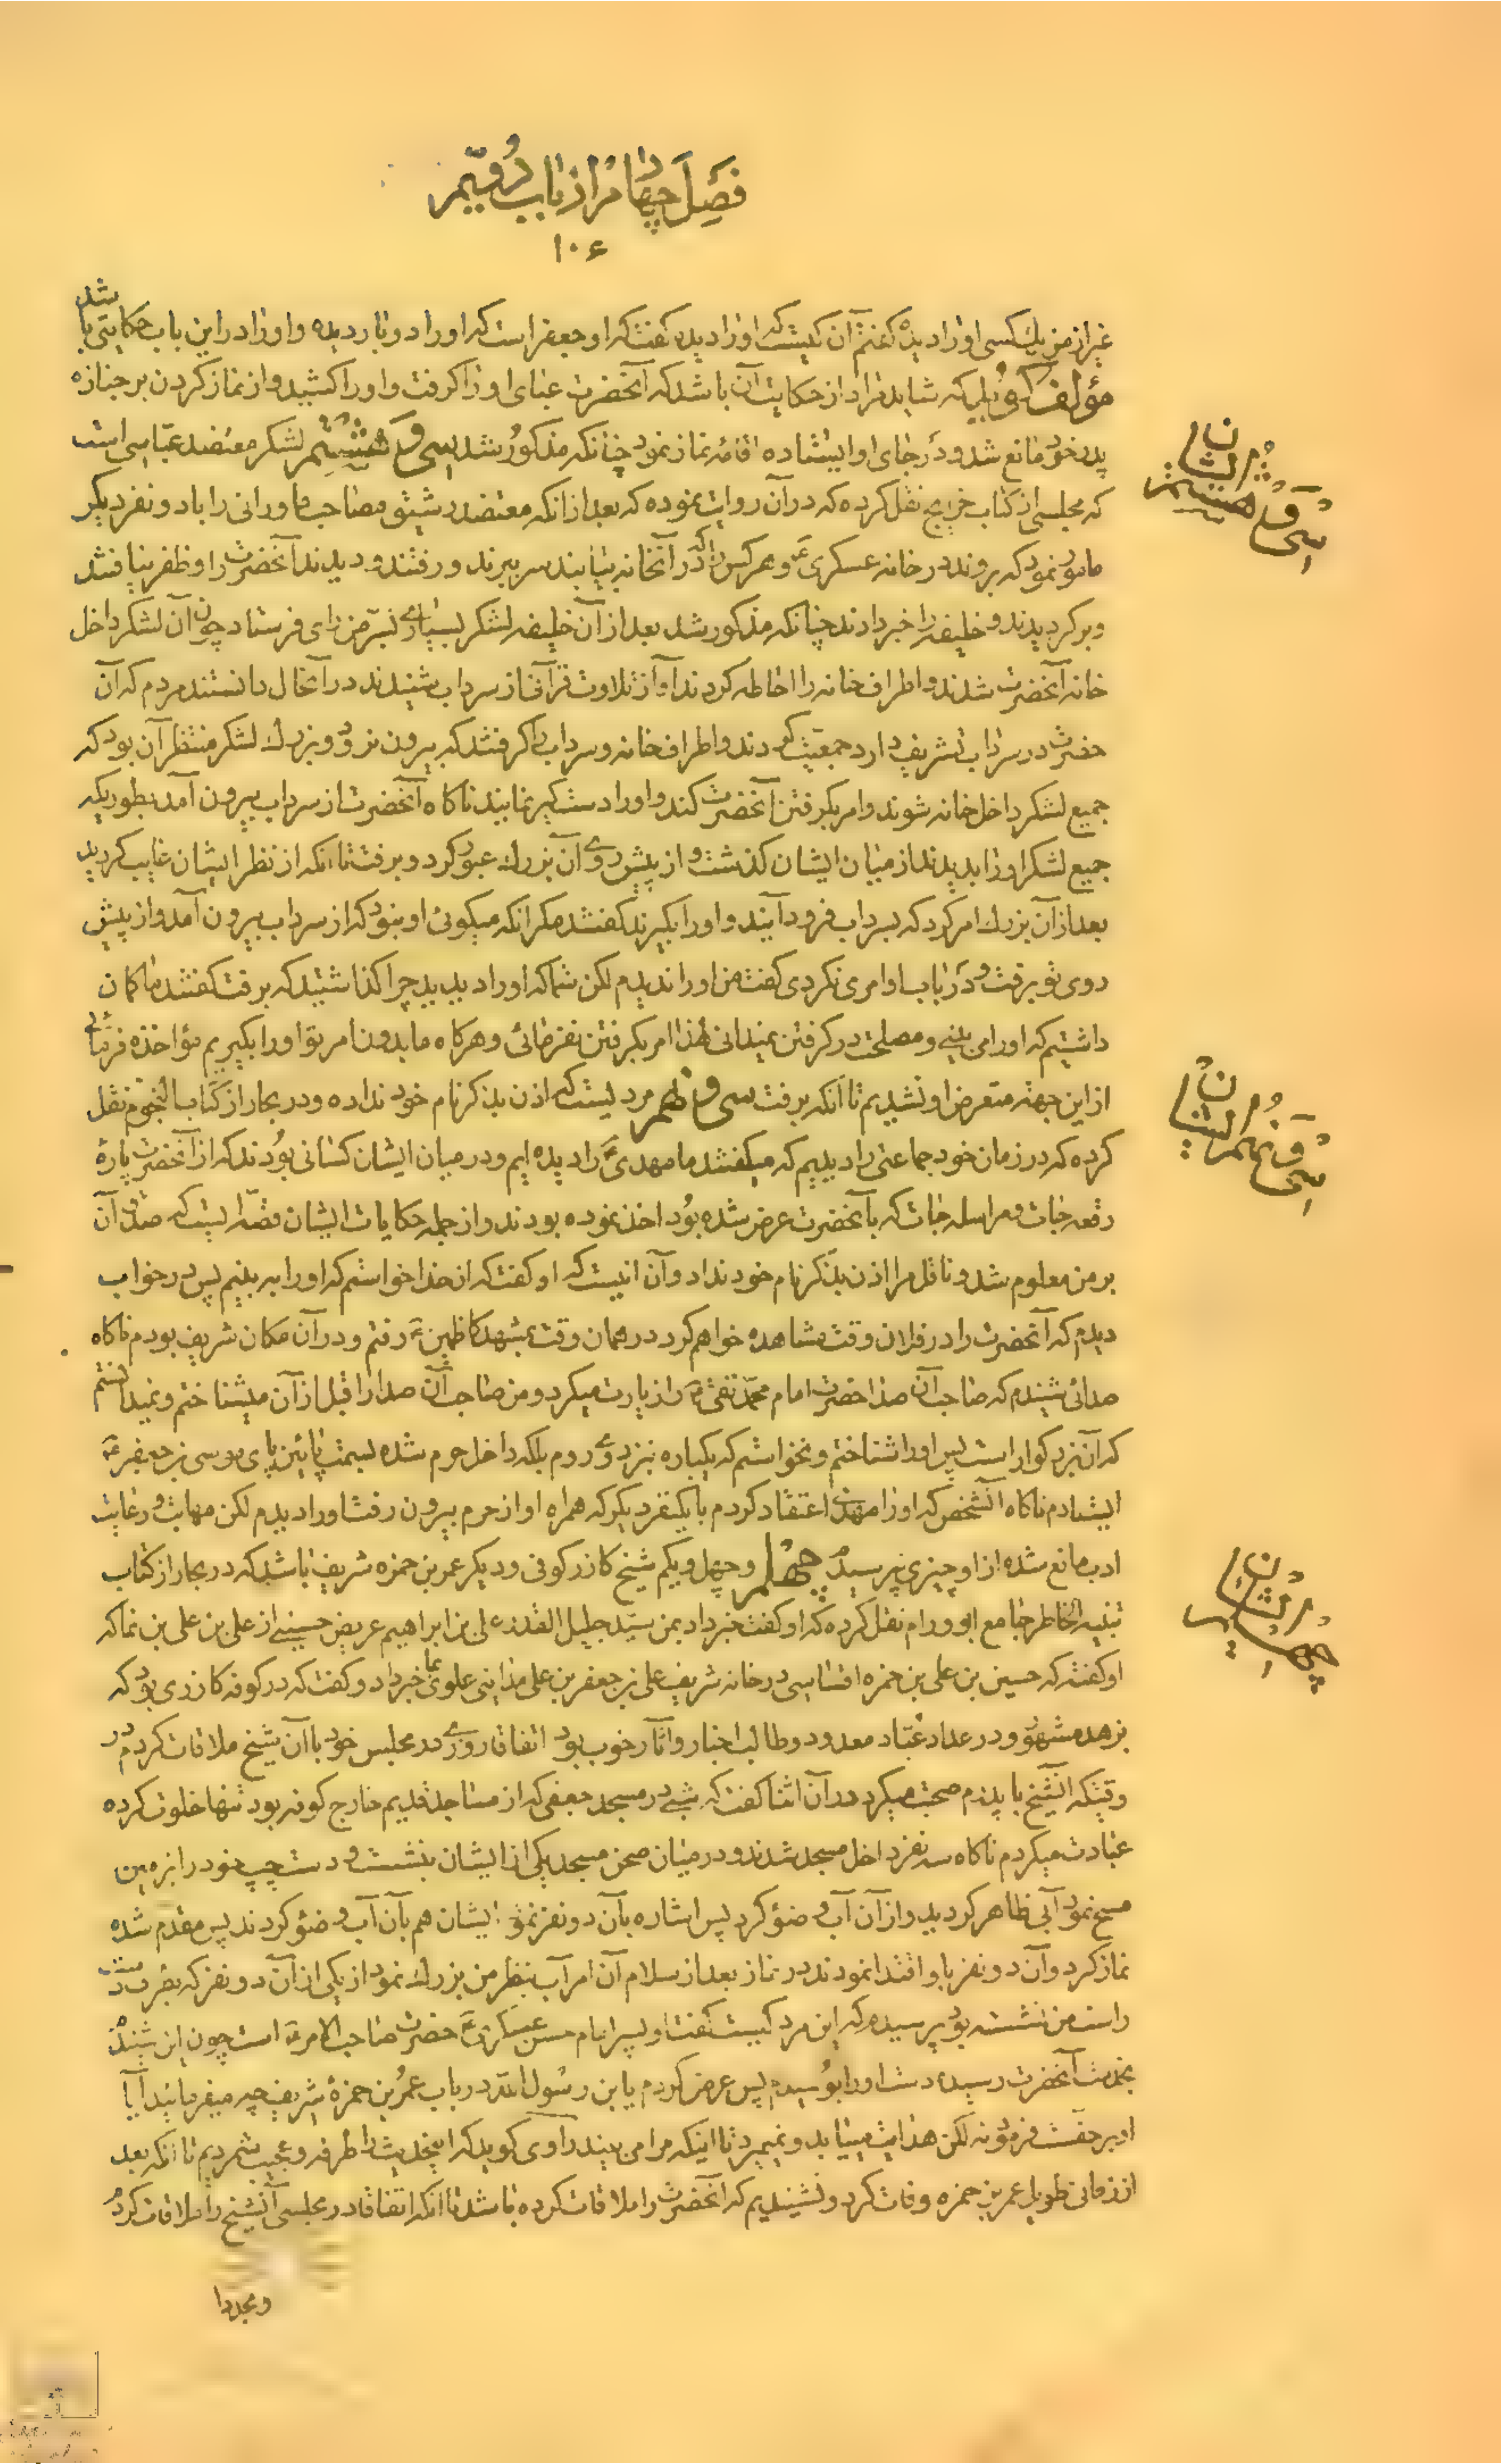 فصل چهارم از باب دویم
۱۰۶
غیر از من یک کسی او را دیده گفتم آن کیست که او را دیده گفت که او جعفر است که او را دو بار دیده و او را در این باب حکایتی باشد
مؤلف گوید که شاید مراد از حکایت آن باشد که آنحضرت عبای او را گرفت و او را کشید و از نماز کردن بر جنازه
پدر خود مانع شد و در جای او ایستاده اقامهٔ نماز نمود چنانکه مذکور شد سی و هشتم لشکر معتضد عباسی است
که مجلسی از کتاب خرایج نقل کرده که در آن روایت نموده که بعد از آنکه معتضد رشیق صاحب مادرانی را با دو نفر دیگر
مامور نمود که بروند در خانه عسکری ع و هر کس را که در آنخانه بیابند سر ببرند و رفتند و دیدند آنحضرت را و ظفر نیافتند
و برگردیدند و خلیفه را خبر دادند چنانکه مذکور شد بعد از آن خلیفه لشکر بسیاری بسر من رای فرستاد چون آن لشکر داخل
خانه آنحضرت شدند و اطراف خانه را احاطه کردند آواز تلاوت قرآن از سرداب شنیدند در آنحال دانستند مردم که آن
حضرت در سرداب تشریف دارد جمعیت کردند و اطراف خانه و سرداب را گرفتند که بیرون نرود و بزرک لشکر منتظر آن بود که
جمیع لشکر داخل خانه شوند و امر بگرفتن آنحضرت کند و او را دستگیر نمایند ناگاه آنحضرت از سرداب بیرون آمد بطوریکه
جمیع لشکر او را بدیدند از میان ایشان گذشت و از پیش روی آن بزرک عبور کرد و برفت تا آنکه از نظر ایشان غایب گردید
بعد از آن بزرک امر کرد که بسرداب فرود آیند و او را بگیرند گفتند مگر آنکه میگوئی او نبود که از سرداب بیرون آمد و از پیش
روی تو برفت و در باب او امری نکردی گفت من او را ندیدم لکن شما که او را دیدید چرا گذاشتید که برفت گفتند ما گمان
داشتیم که او را می بینی و مصلحت در گرفتن نمیدانی لهذا امر بگرفتن نفرمائی و هرگاه ما بدون امر تو او را بگیریم مؤاخذه فرمائی
از این جهة متعرض او نشدیم تا آنکه برفت سی و نهم مردیست که اذن بذکر نام خود نداده و در بحار از کتاب النجوم نقل
کرده که در زمان خود جماعتی را دیدیم که میگفتند ما مهدی ع را دیده ایم و در میان ایشان کسانی بودند که از آنحضرت پارهٔ
رقعه جات و مراسله جات که بآنحضرت عرض شده بود اخذ نموده بودند و از جمله حکایات ایشان قصه ایست که صدق آن
بر من معلوم شد و ناقل مرا اذن بذکر نام خود نداد و آن اینست که او گفت که از خدا خواستم که او را به بینم پس در خواب
دیدم که آنحضرت را در فلان وقت مشاهده خواهم کرد در همان وقت بمشهد کاظمین ع رفتم و در آن مکان شریف بودم ناگاه
صدائی شنیدم که صاحب آن صدا حضرت امام محمد تقی ع را زیارت میکرد و من صاحب آن صدا را قبل از آن میشناختم و نمیدانستم
که آن بزرگوار است پس او را شناختم و نخواستم که یکباره نزد وی روم بلکه داخل حرم شده بسمت پائین پای موسی بن جعفر ع
ایستادم ناگاه آنشخص که او را مهدی اعتقاد کردم با یکنفر دیگر که همراه او از حرم بیرون رفت او را دیدم لکن مهابت و رعایت
ادب مانع شده از او چیزی نپرسیدم چهلم و چهل و یکم شیخ کازر کوفی و دیگر عمر بن حمزه شریف باشد که در بحار از کتاب
تنبیه الخاطر جامع ابو ورام نقل کرده که او گفت خبر داد بمن سید جلیل القدر علی بن ابراهیم عریضی حسینی از علی بن علی بن نما که
او گفت که حسین بن علی بن حمزه اقساسی در خانه شریف علی بن جعفر بن علی مداینی علوی بما خبر داد و گفت که در کوفه کازری بود که
بزهد مشهور و در عداد عبّاد معدود و طالب اخبار و آثار خوب بود اتفاقا روزی در مجلس خود با آن شیخ ملاقات کردم در
وقتیکه آنشیخ با پدرم صحبت میکرد در آن اثنا گفت که شبی در مسجد جعفی که از مساجد قدیم خارج کوفه بود تنها خلوت کرده
عبادت میکردم ناگاه سه نفر داخل مسجد شدند و در میان صحن مسجد یکی از ایشان بنشست و دست چپ خود را بزمین
مسح نمود آبی ظاهر گردید و از آن آب وضو کرد پس اشاره بآن دو نفر نمود ایشان هم بآن آب وضو کردند پس مقدم شده
نماز کرد و آن دو نفر باو اقتدا نمودند در نماز بعد از سلام آن امر آب بنظر من بزرک نمود از یکی از آن دو نفر که بطرف دست
راست من نشسته بود پرسیدم که این مرد کیست گفت او پسر امام حسن عسکری ع حضرت صاحب الامر ع است چون این شنیدم
بخدمت آنحضرت رسیده دست او را بوسیدم پس عرض کردم یا بن رسول الله در باب عمر بن حمزهٔ شریف چه میفرمائید آیا
او بر حق است فرمود نه لکن هدایت مییابد و نمیمیرد تا اینکه مرا می بیند راوی گوید که اینحدیث را طرفه و عجیب شمردیم تا آنکه بعد
از زمانی طویل عمر بن حمزه وفات کرد و نشنیدیم که آنحضرت را ملاقات کرده باشد تا آنکه اتفاقا در مجلسی آنشیخ را ملاقات کردم
و مجددا
سی و هشتم ایشان
سی و نهم ایشان
چهلم ایشان